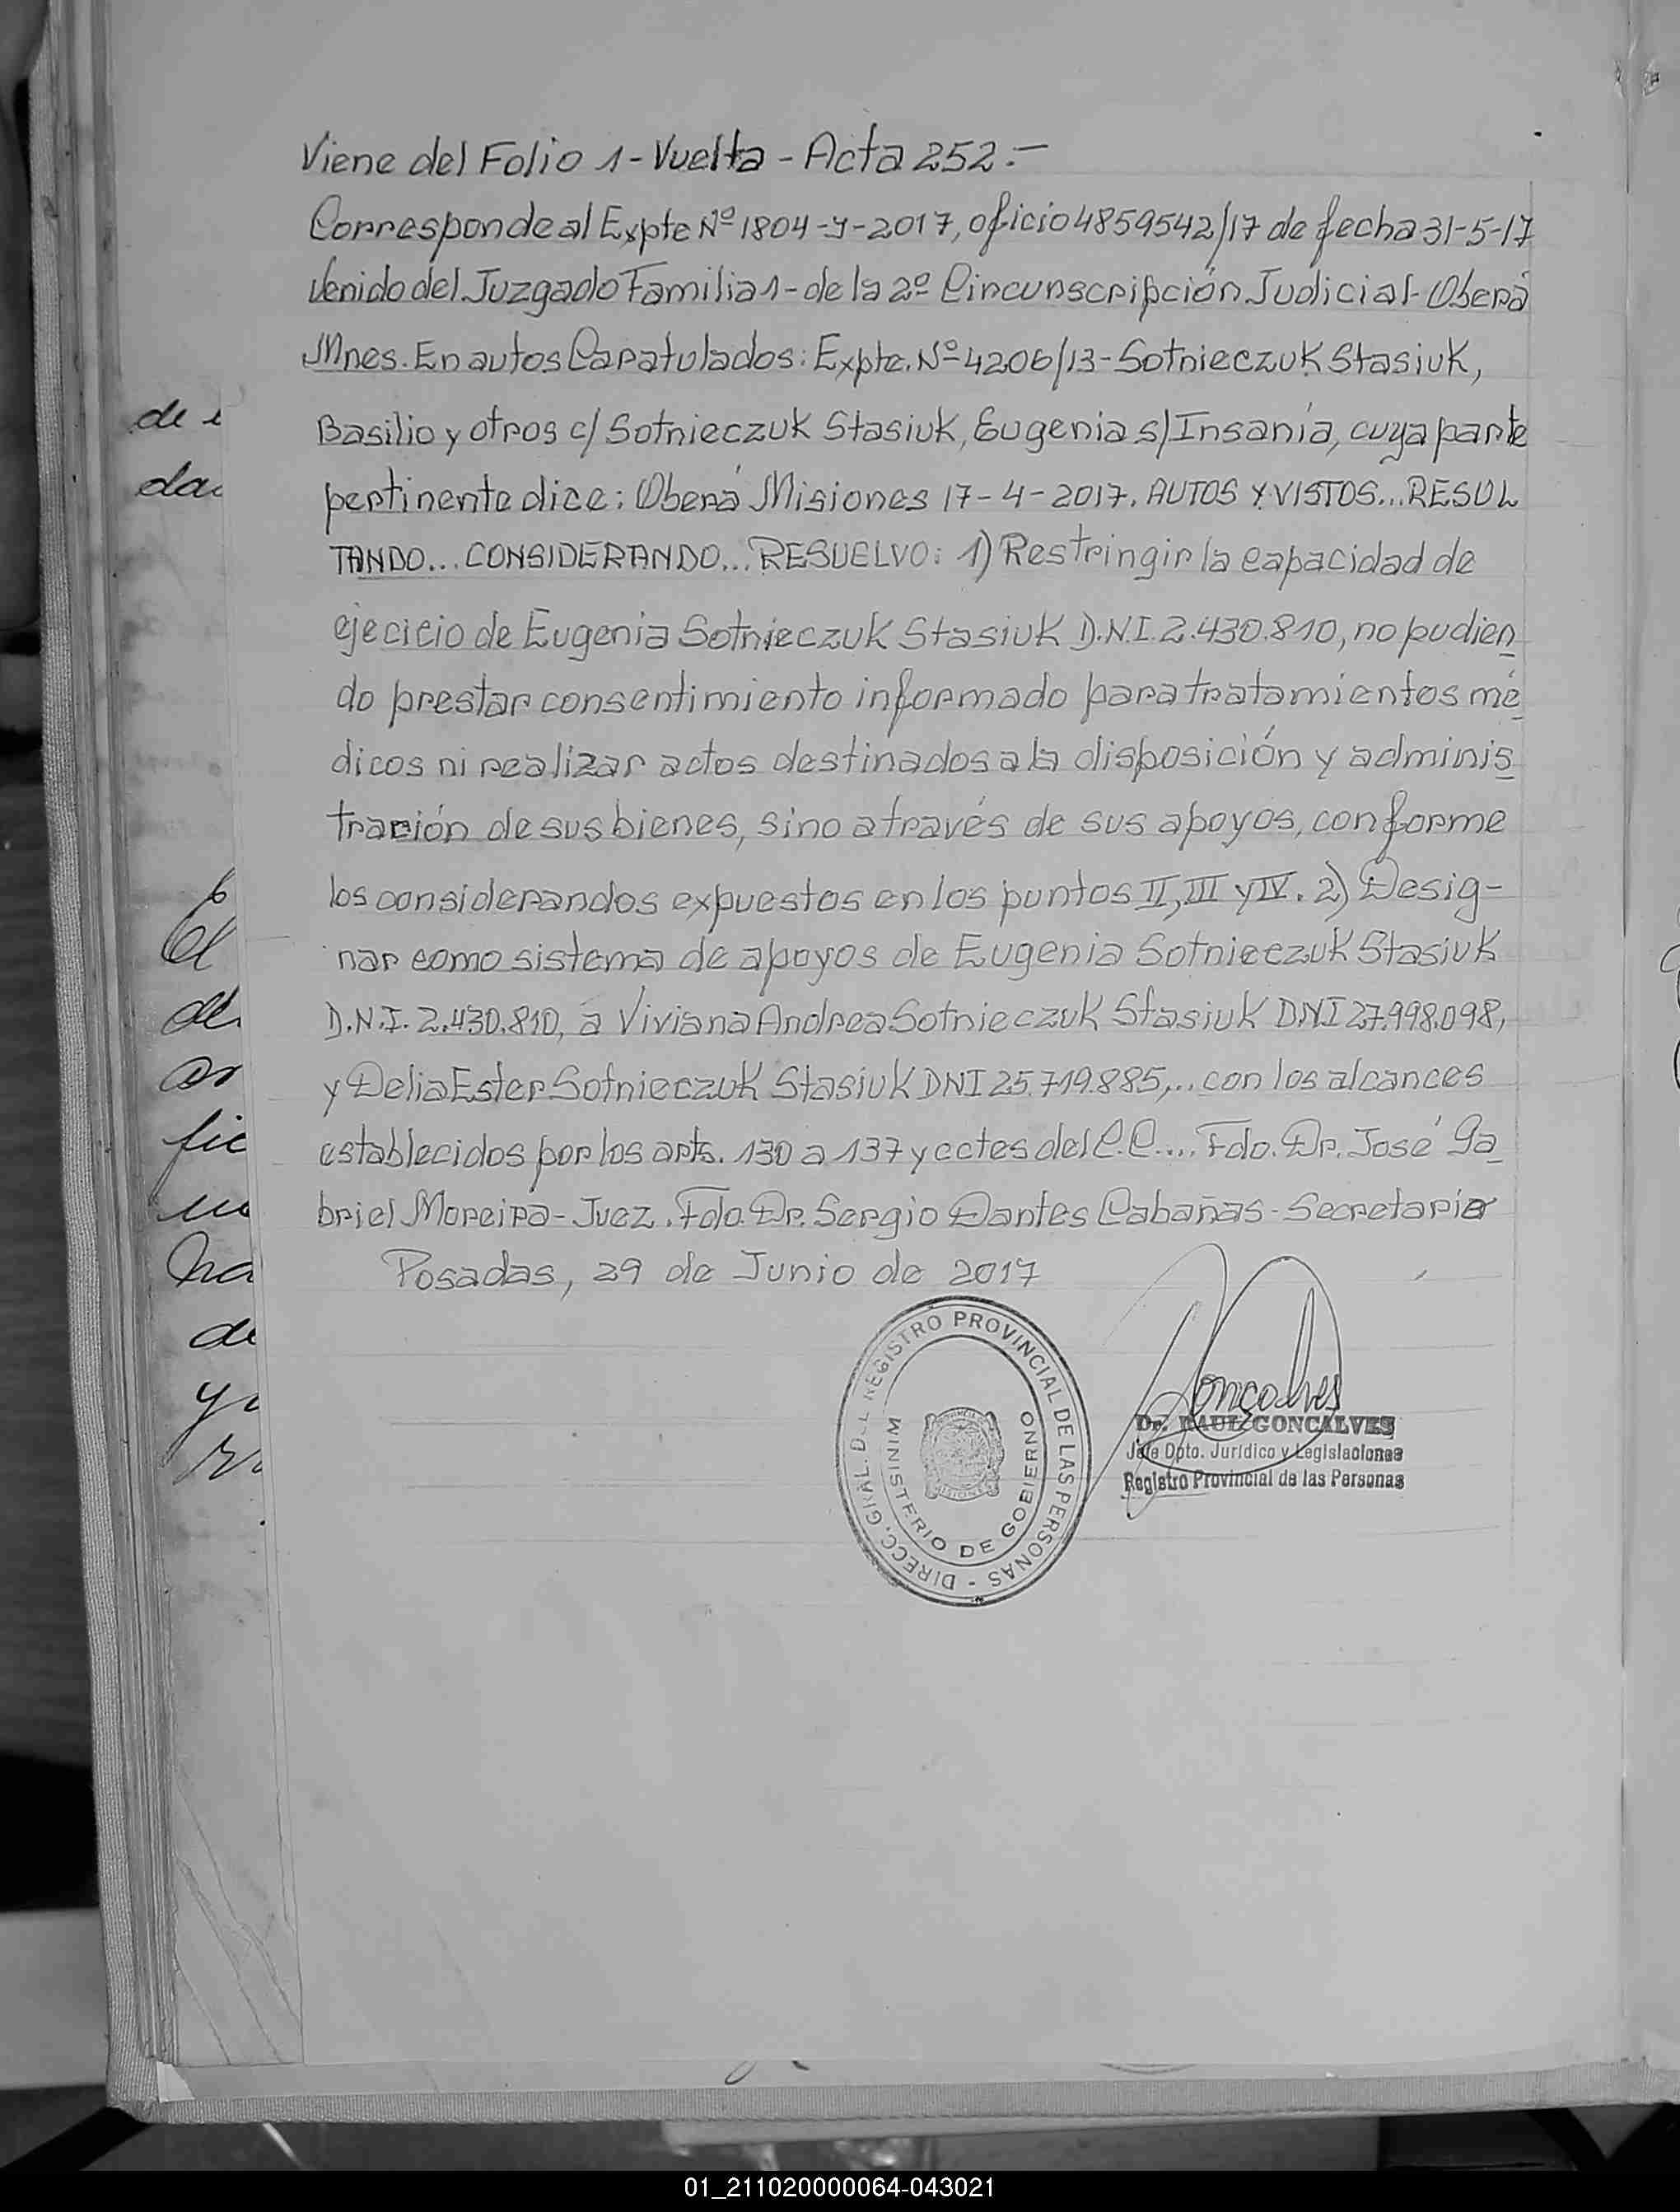 Viene del Folio 1 - Vuelta - Acta 252.-
Corresponde al Expte Nº 1804-J-2017, oficio 4859542/17 de fecha 31-5-17
venido del Juzgado Familia 1 - de la 2º Circunscripción Judicial - Oberá
Mnes. En autos Caratulados: Expte. Nº 4206/13 - Sotnieczuk Stasiuk,
Basilio y otros c/ Sotnieczuk Stasiuk, Eugenia s/ Insanía, cuya parte
pertinente dice: Oberá Misiones 17-4-2017. AUTOS Y VISTOS... RESUL
TANDO... CONSIDERANDO... RESUELVO: 1) Restringir la capacidad de
ejecicio de Eugenia Sotnieczuk Stasiuk D.N.I. 2.430.810, no pudien
do prestar consentimiento informado para tratamientos mé
dicos ni realizar actos destinados a la disposición y adminis
tración de sus bienes, sino a través de sus apoyos, conforme
los considerandos expuestos en los puntos II, III y IV. 2) Desig-
nar como sistema de apoyos de Eugenia Sotnieczuk Stasiuk
D.N.I. 2.430.810, a Viviana Andrea Sotnieczuk Stasiuk DNI 27.998.098,
y Delia Ester Sotnieczuk Stasiuk DNI 25.719.885,... con los alcances
establecidos por los arts. 130 a 137 y cctes del C.C.... Fdo. Dr. José Ga
briel Moreira - Juez. Fdo. Dr. Sergio Dantes Cabañas - Secretario
Posadas, 29 de Junio de 2017
DIRECC. GRAL. DEL REGISTRO PROVINCIAL DE LAS PERSONAS -
MINISTERIO DE GOBIERNO
MISIONES
Goncalves
Dr. RAUL GONCALVES
Jefe Dpto. Jurídico y Legislaciones
Registro Provincial de las Personas
01_211020000064-043021